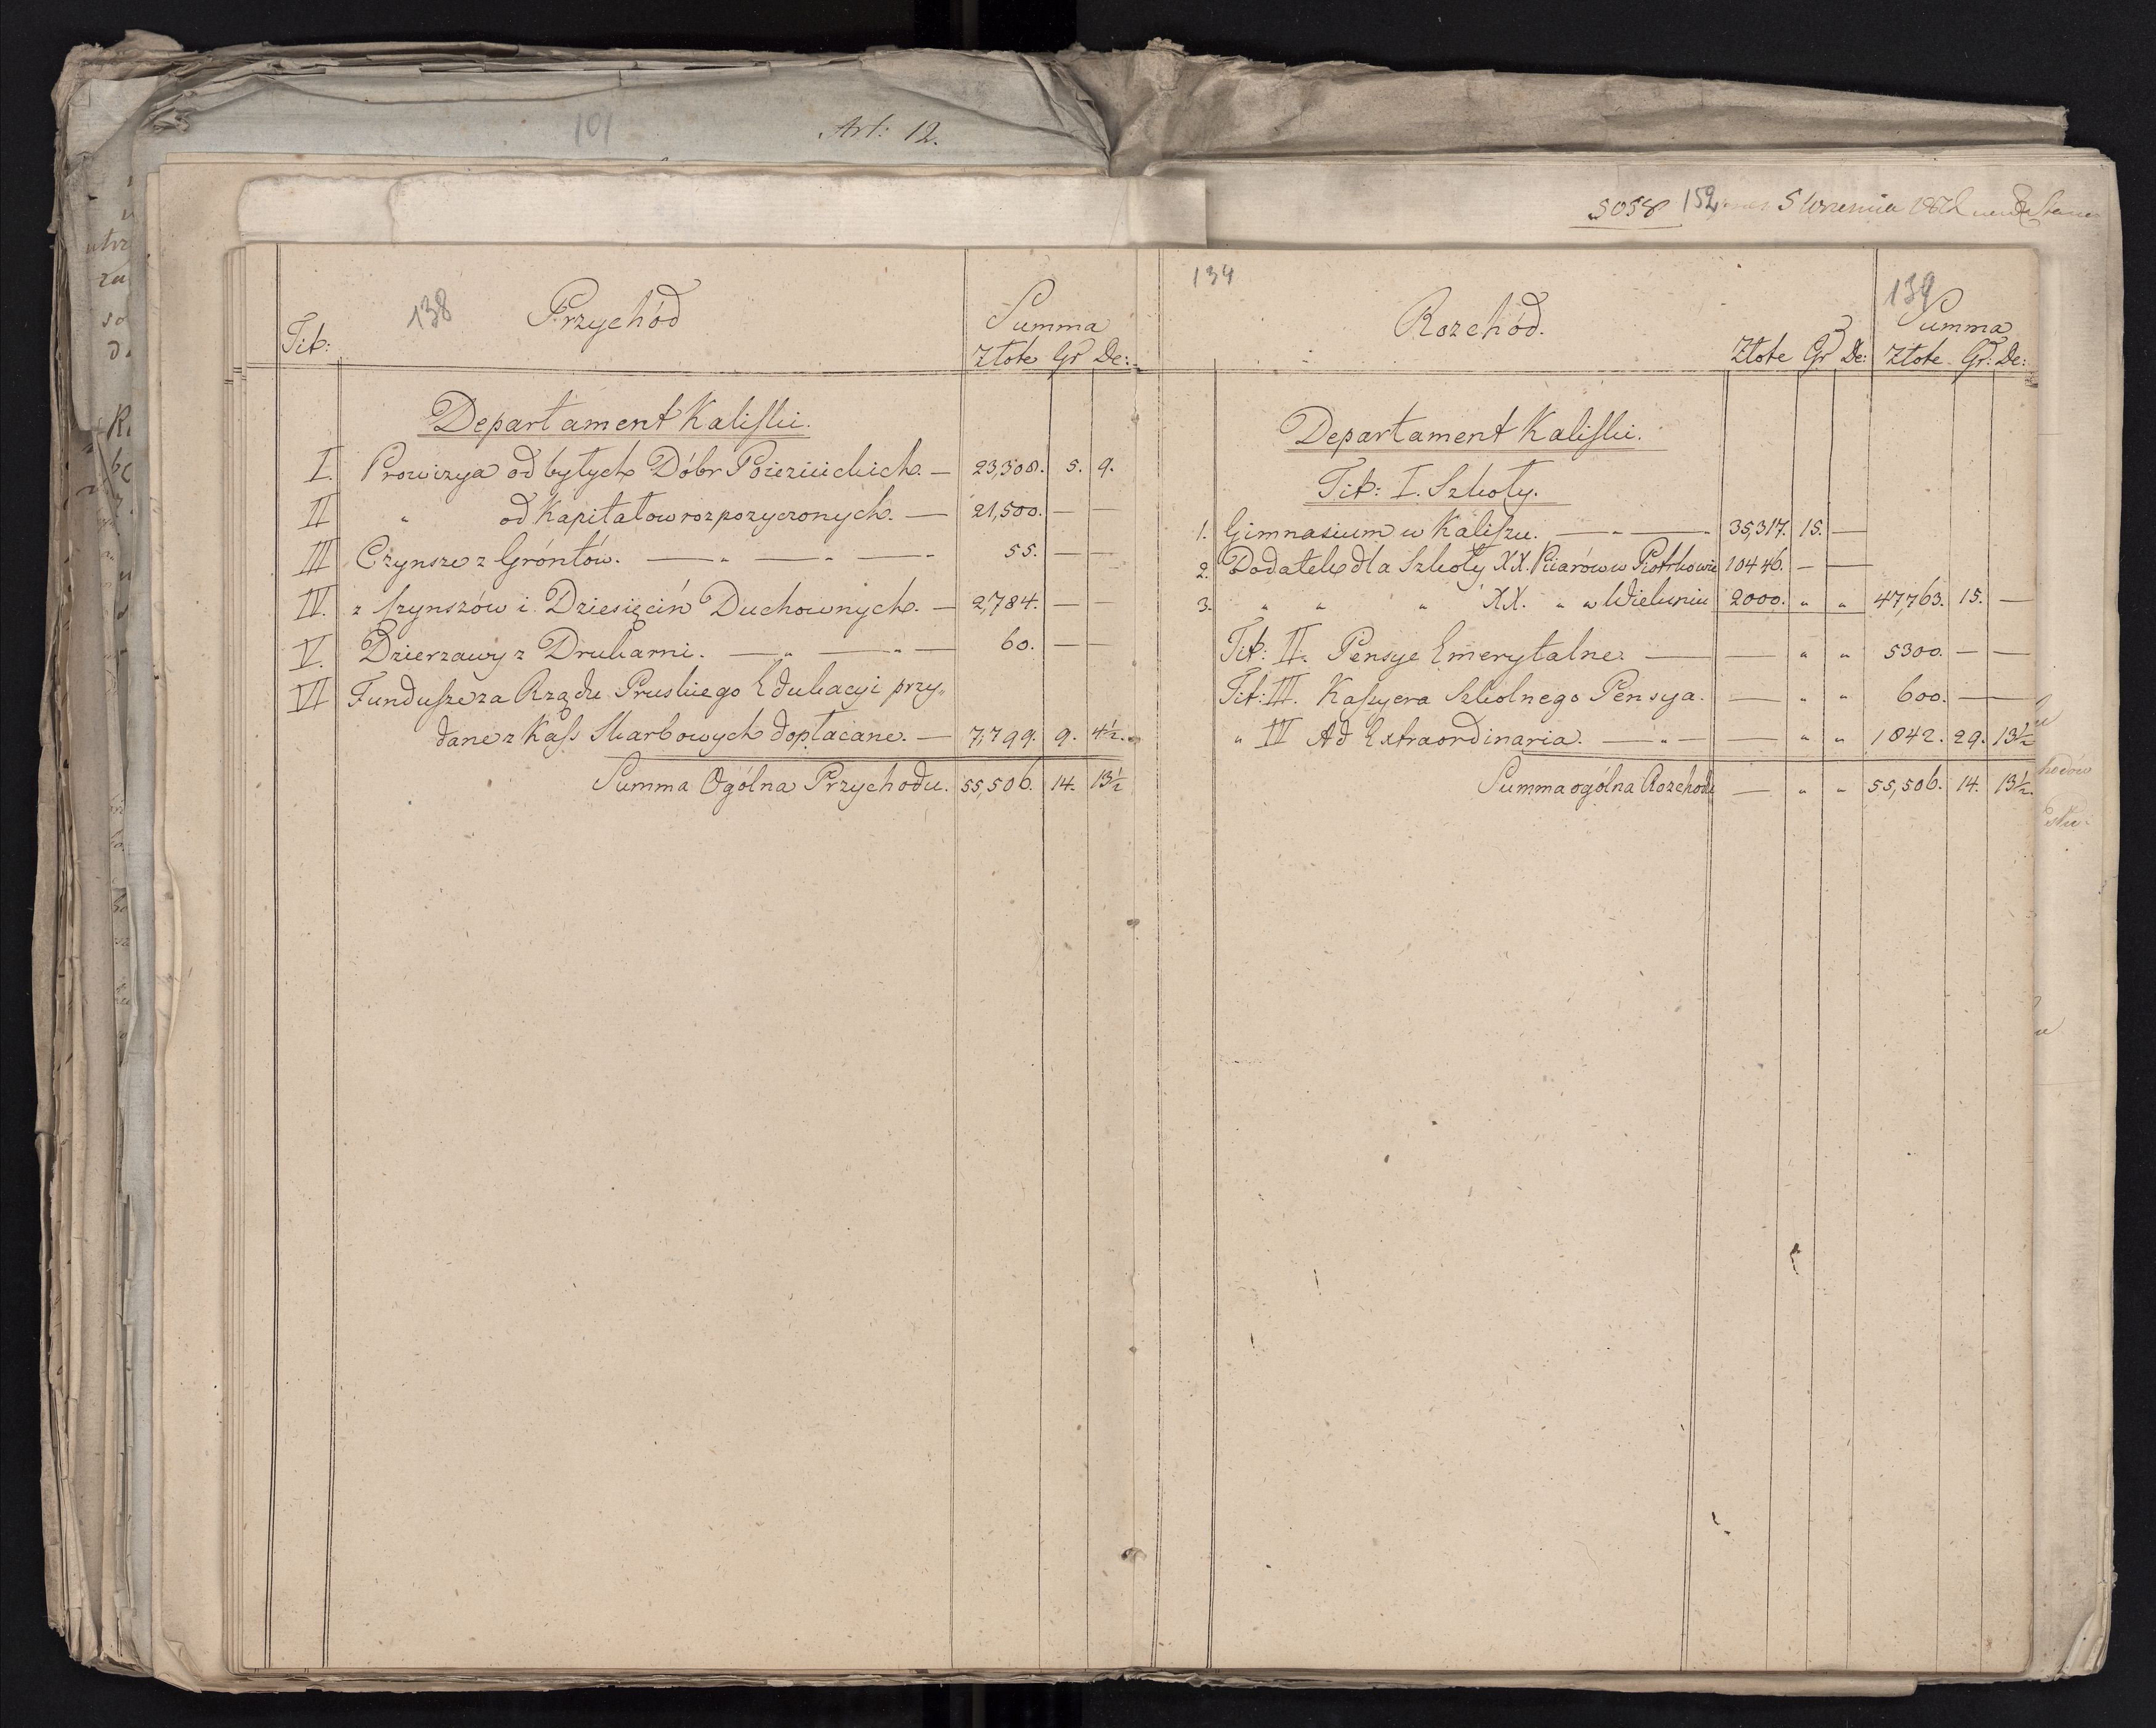 101 Art: 12.
5058 152 5 Września
138 Przychód Summa
Tit: Złote Gr De:
Departament Kaliski.
I. Prowizya od byłych Dóbr Pojezuickich. — 23,308. 5. 9.
II „ od Kapitałow rozpozyczonych. — 21,500. — —
III Czynsze z Gróntów. — „ — „ — „ 55. — —
IV. z Czynszów i Dziesięcin Duchownych. — 2,784. — —
V. Dzierzawy z Drukarni. — „ — „ — 60. — —
VI Fundusze za Rządu Pruskiego Edukacyi przy„
dane z Kass Skarbowych dopłacane. — 7,799. 9. 4½.
Summa Ogólna Przychodu. 55,506. 14. 13½
134 139
Rozchód. Summa
Złote Gr De: Złote Gr: De:
Departament Kaliski.
Tit: I. Szkoły.
1. Gimnasium w Kaliszu. — „ — 35,317. 15. —
2. Dodatek dla Szkoły XX. Piiarów w Piotrkowie 10446. — —
3. „ „ „ XX. „ w Wieluniu 2000. „ „ 47,763. 15. —
Tit: II. Pensye Emerytalne. — — „ „ 5300. — —
Tit: III. Kassyera Szkolnego Pensya. — „ „ 600. — —
„ IV Ad Extraordinaria. — „ — — „ „ 1842. 29. 13½
Summa ogólna Rozchodu — „ „ 55,506. 14. 13½.